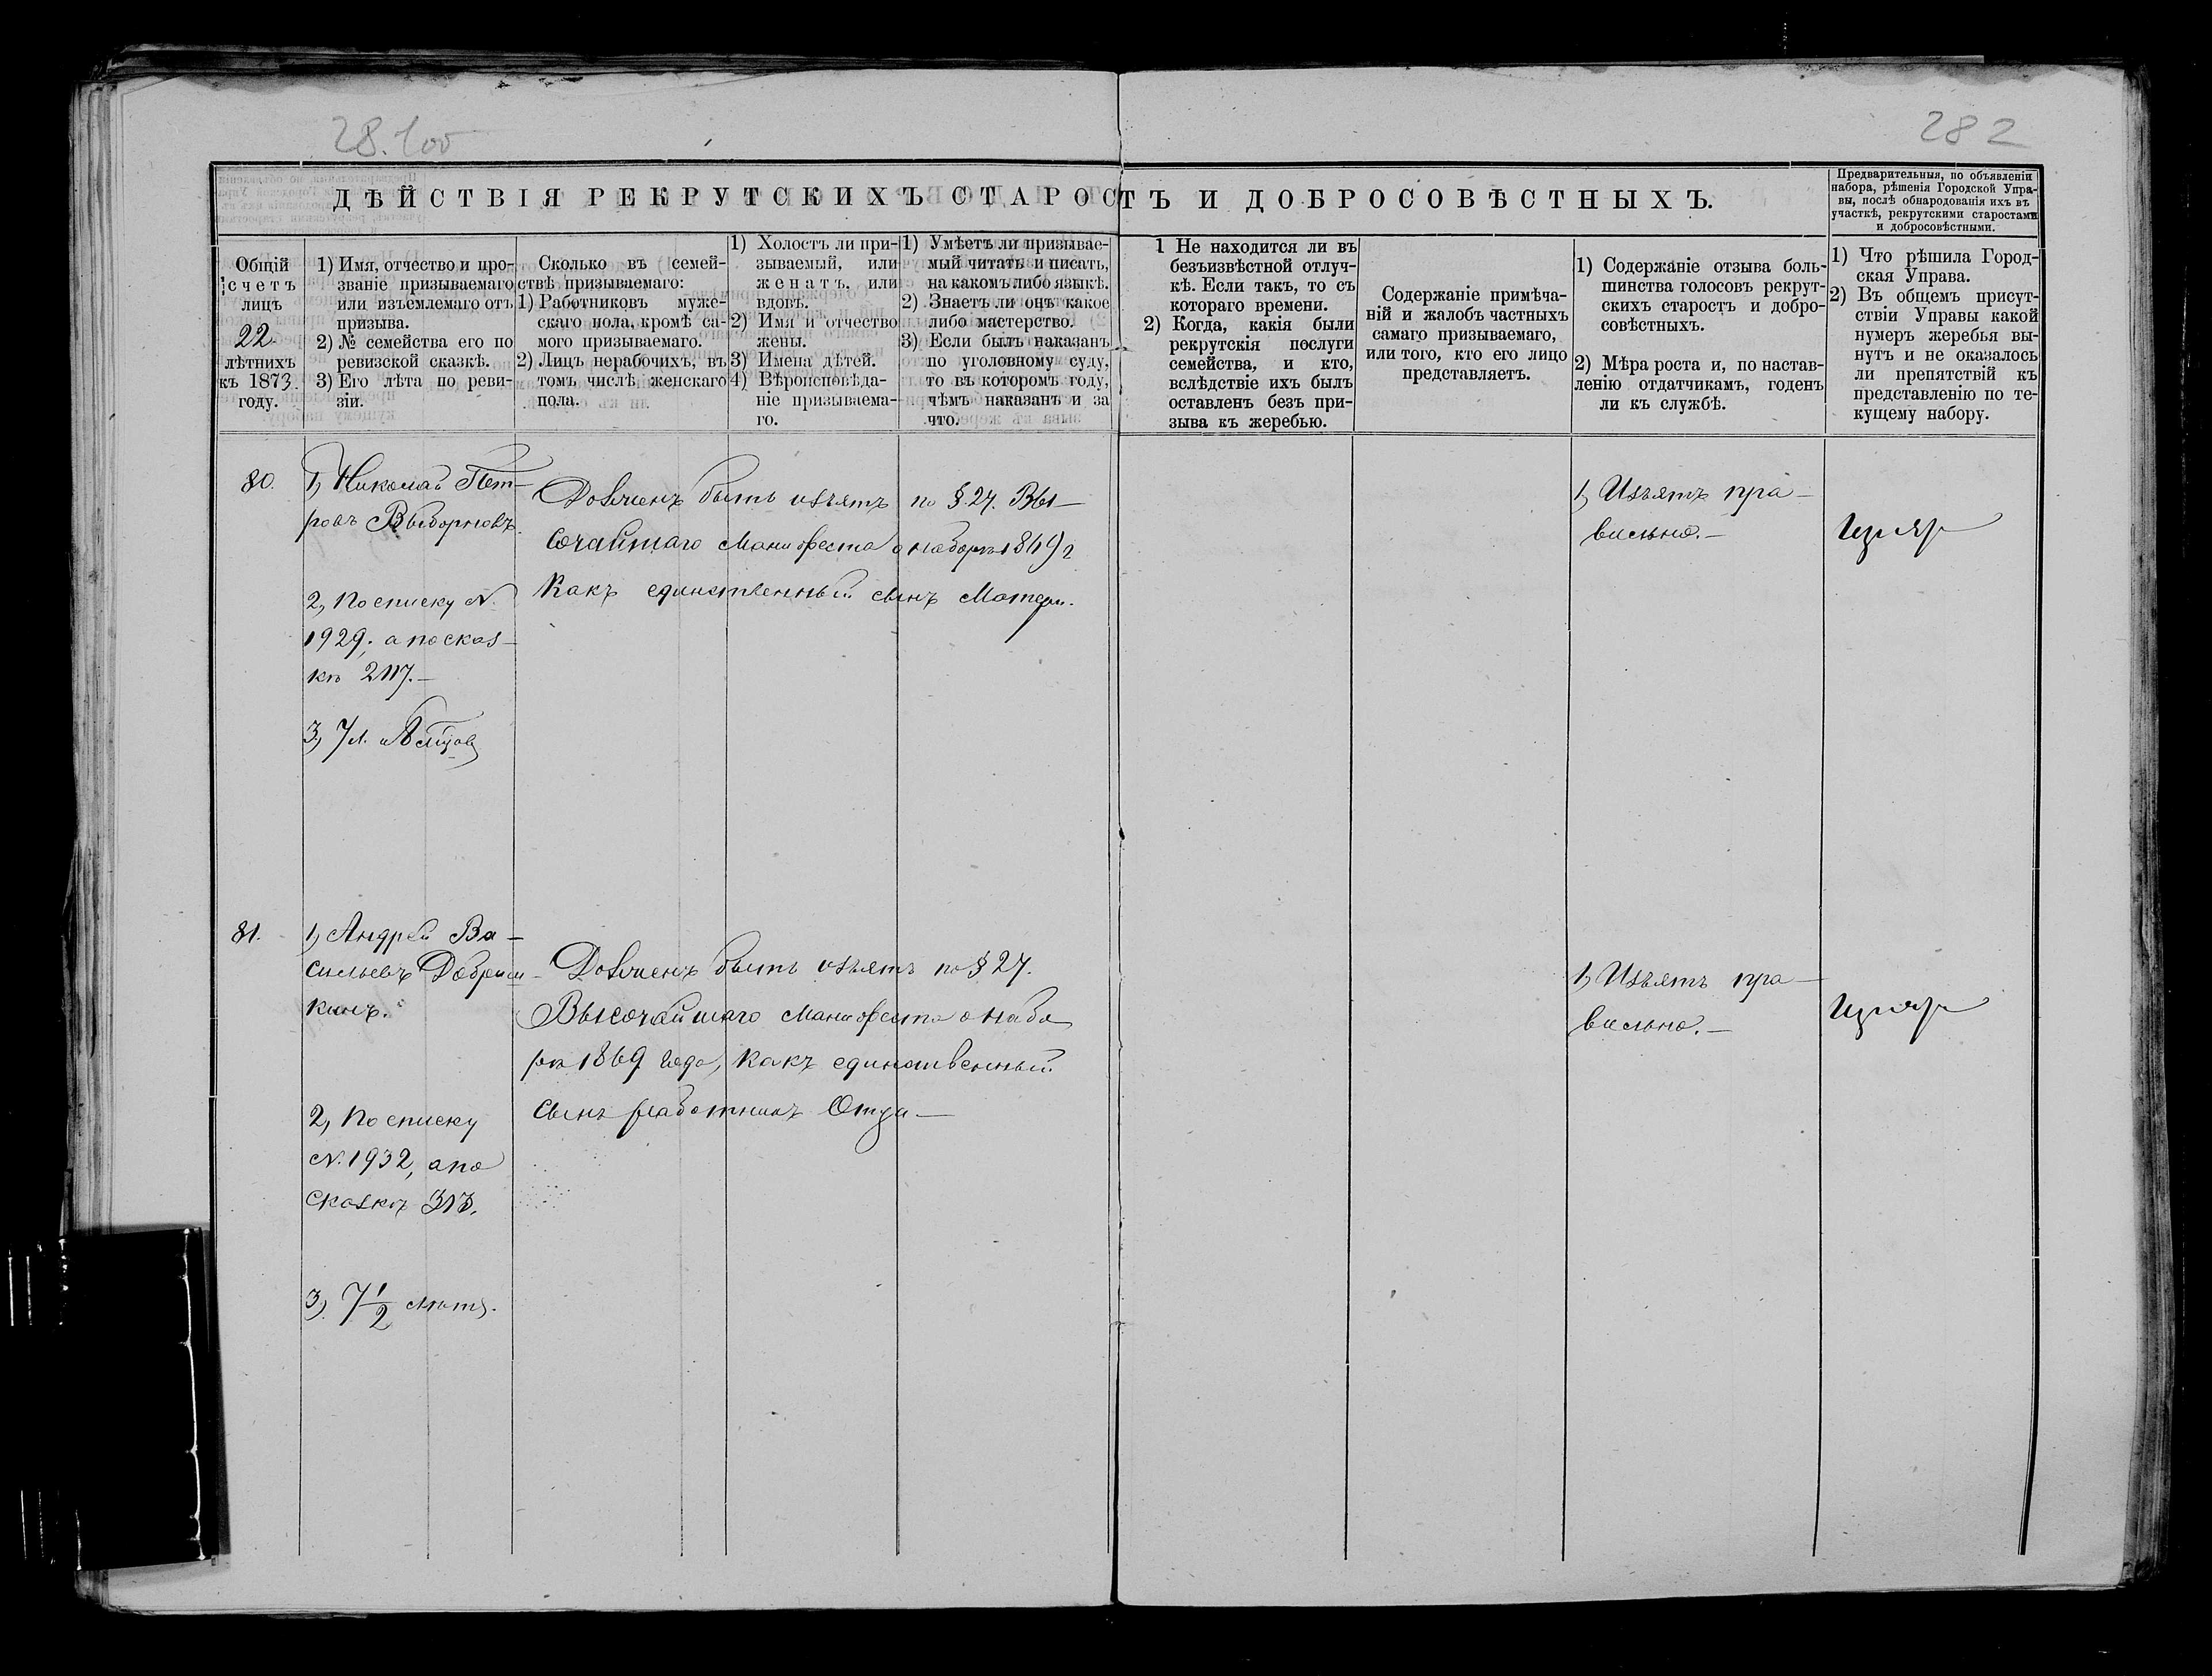 28.100
282
ДѢЙСТВІЯ РЕКРУТСКИХЪ СТАРОСТЪ И ДОБРОСОВѢСТНЫХЪ.
Предварительныя, по объявленіи
набора, рѣшенія Городской Упра-
вы, послѣ обнародованія ихъ въ
участкѣ, рекрутскими старостами
и добросовѣстными.
Общій
счетъ
лицъ
22
лѣтнихъ
къ 1873
году.
1) Имя, отчество и про-
званіе призываемаго
или изъемлемаго отъ
призыва.
2) № семейства его по
ревизской сказкѣ.
3) Его лѣта по реви-
зіи.
Сколько въ семей-
ствѣ призываемаго:
1) Работниковъ муже-
скаго пола, кромѣ са-
мого призываемаго.
2) Лицъ нерабочихъ, въ
томъ числѣ женскаго
пола.
1) Холостъ ли при-
зываемый, или
женатъ, или
вдовъ.
2) Имя и отчество
жены.
3) Имена дѣтей.
4) Вѣроисповѣда-
ніе призываема-
го.
1) Умѣетъ ли призывае-
мый читать и писать,
на какомъ либо языкѣ.
2) Знаетъ ли онъ какое
либо мастерство.
3) Если былъ наказанъ
по уголовному суду,
то въ которомъ году,
чѣмъ наказанъ и за
что.
1 Не находится ли въ
безъизвѣстной отлуч-
кѣ. Если такъ, то съ
котораго времени.
2) Когда, какія были
рекрутскія послуги
семейства, и кто,
вслѣдствіе ихъ былъ
оставленъ безъ при-
зыва къ жеребью.
Содержаніе примѣча-
ній и жалобъ частныхъ
самаго призываемаго,
или того, кто его лицо
представляетъ.
1) Содержаніе отзыва боль-
шинства голосовъ рекрут-
скихъ старостъ и добро-
совѣстныхъ.
2) Мѣра роста и, по настав-
ленію отдатчикамъ, годенъ
ли къ службѣ.
1) Что рѣшила Город-
ская Управа.
2) Въ общемъ присут-
ствіи Управы какой
нумеръ жеребья вы-
нутъ и не оказалось
ли препятствій къ
представленію по те-
кущему набору.
80.
1, Николай Пет-
ровъ Выборновъ.
2, По списку N.
1929; а по сказ-
кѣ 2117.—
3, 7 л.
Долженъ быть изъятъ по §. 27. Вы-
сочайшаго Манифеста о наборѣ 1869 г
Какъ единственный сынъ Матери.
1, Изъятъ пра-
вильно.—
81.
1, Андрей Ва-
сильевъ
кинъ.
2, По списку
N. 1932, а по
Сказкѣ 313.
3, 7 1/2 лѣтъ.
Долженъ быть изъятъ по § 27.
Высочайшаго Манифеста о набо
рѣ 1869 года, Какъ единственный
Сынъ работникъ Отца—
1, Изъятъ пра-
вильно.—